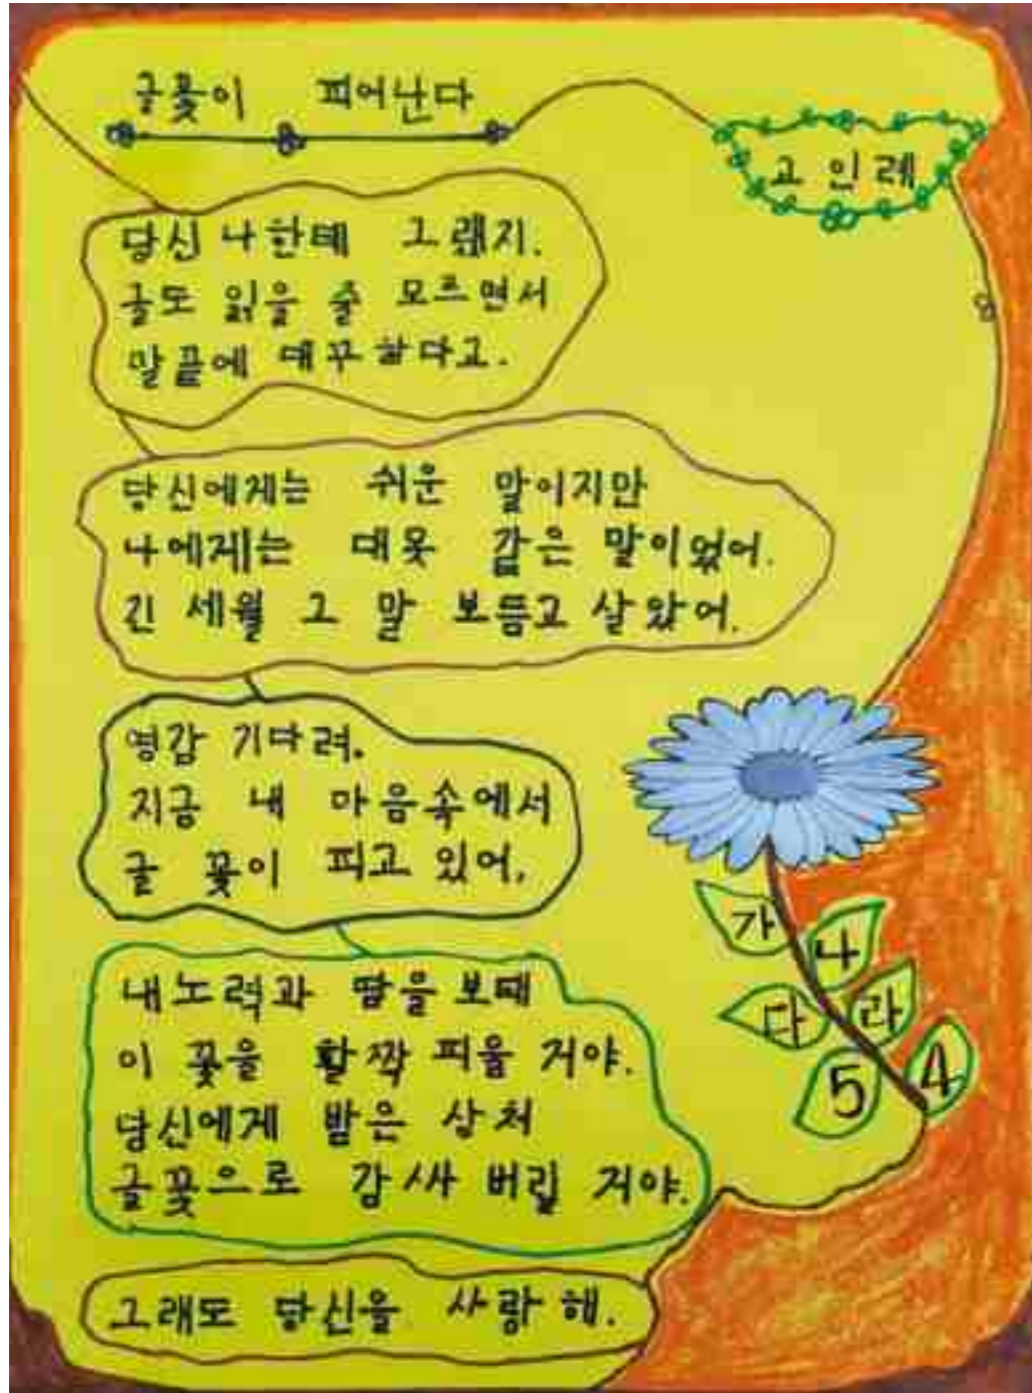 글꽃이 피어난다
고인례
당신 나한테 그랬지.
글도 읽을 줄 모르면서
말끝에 대꾸한다고.
당신에게는 쉬운 말이지만
나에게는 대못 같은 말이었어.
긴 세월 그 말 보듬고 살았어.
영감 기다려.
지금 내 마음속에서
글 꽃이 피고 있어.
내 노력과 땀을 보태
이 꽃을 활짝 피울 거야.
당신에게 받은 상처
글꽃으로 감싸 버릴 거야.
그래도 당신을 사랑해.
가
나
다
라
5
4